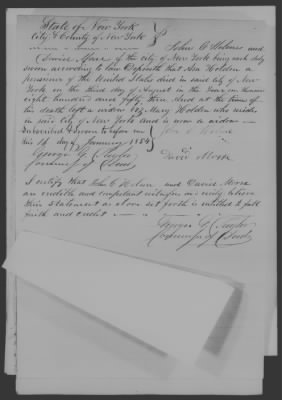 State of New York
City & County of New York
John C Holmes and
David Morse of the city of New York being each duly
sworn according to law Deposeth that Asa Holden a
pensioner of the United States died in said city of New
York on the third day of August in the Year one thousand
eight hundred and fifty three. And at the time of
his death left a widow Viz Mary Holden who resides
in said City of New York and is now a widow
Subscribed & Sworn before me
this 14 day of January 1854
George G. Taylor
Commissioner of Deeds
David Morse
I certify that John C Holmes and David Morse
are credible and competent witnesses and I verily believe
their statement as above set forth is entitled to full
faith and credit
George G. Taylor
Commissioner of Deeds